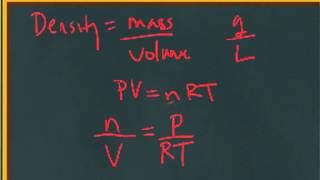 Density = mass/volume g/L
PV = nRT
n/V = P/RT